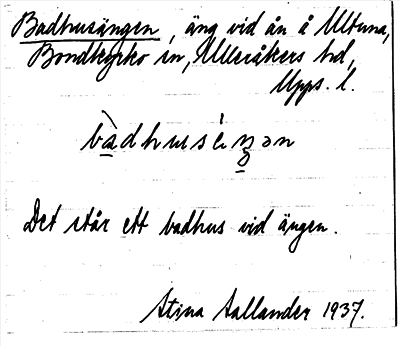 Badhusängen, äng vid ån å Ultuna,
Bondkyrko sn, Ulleråkers hd,
Upps. l.
Det står ett badhus vid ängen.
Stina Sallander 1937.